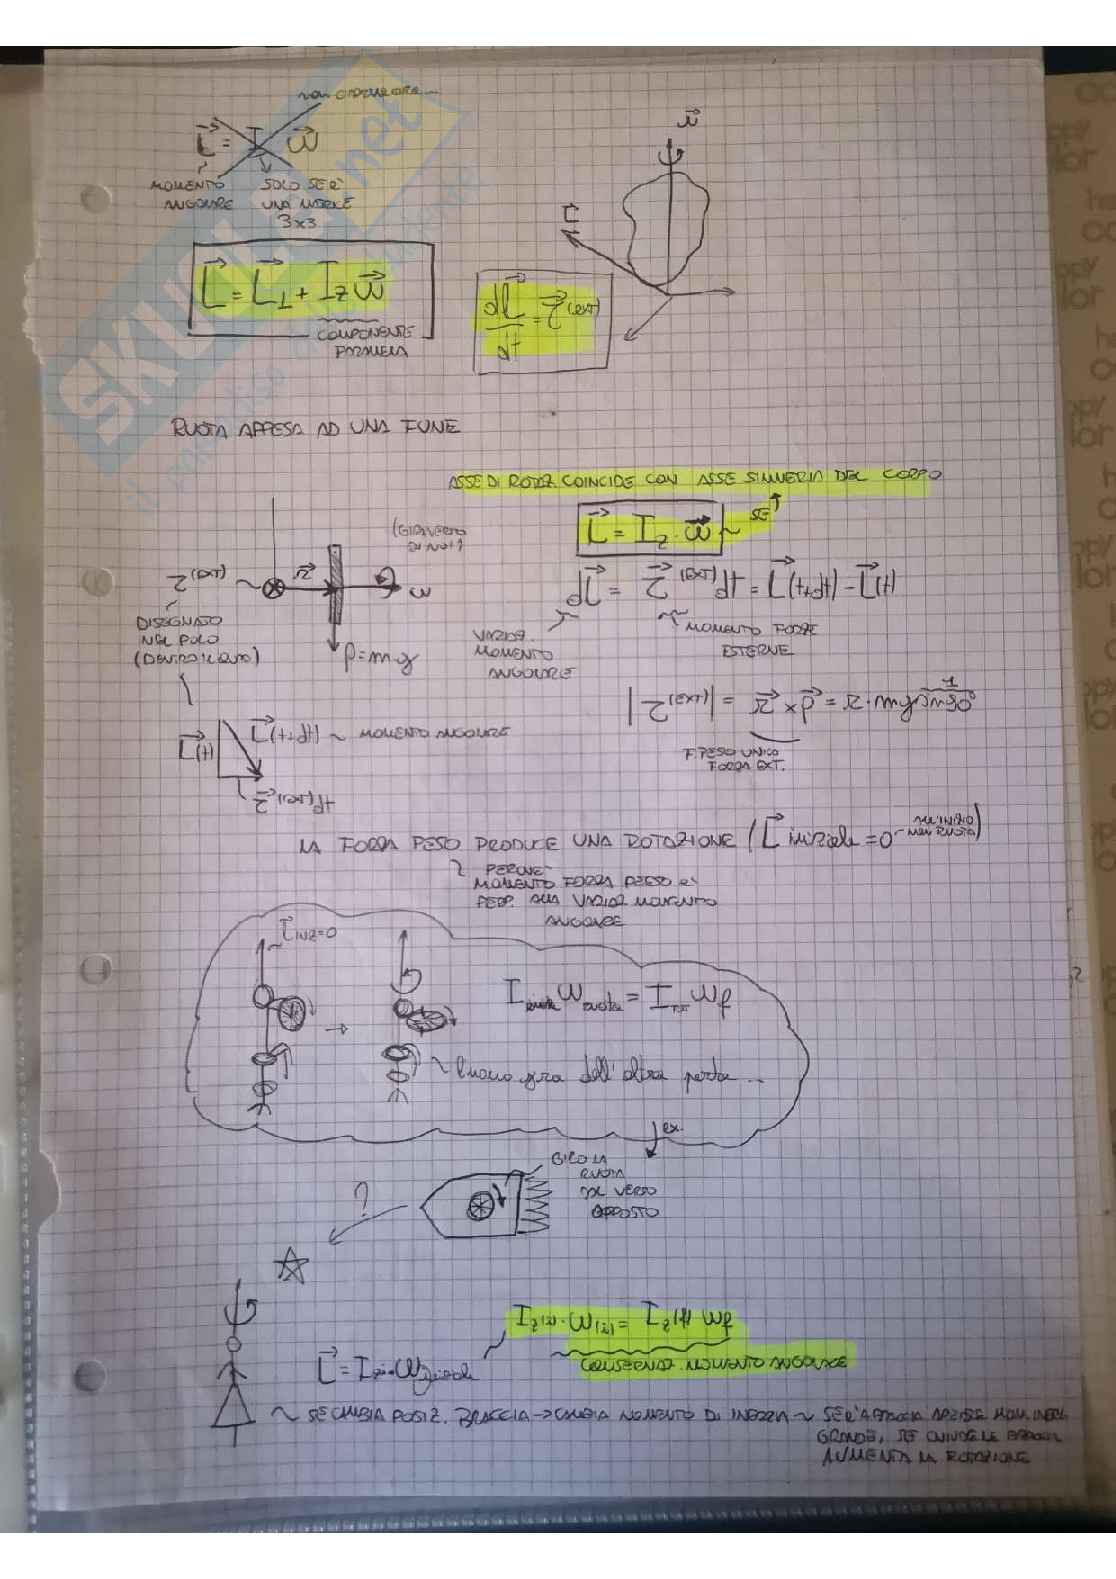 L = I ω
MOMENTO
ANGOLARE
SOLO SE I È
UNA MATRICE
3x3
L = L⊥ + Iz ω
COMPONENTE
PARALLELA
dL/dt = τ(ext)
L
RUOTA APPESA AD UNA FUNE
ASSE DI ROTAZ COINCIDE CON ASSE SIMMETRIA DEL CORPO
L = Iz · ω ~ SE
dL = τ(EXT) dt = L(t+dt) - L(t)
VARIAZ.
MOMENTO
ANGOLARE
MOMENTO FORZE
ESTERNE
τ(EXT)
r
ω
DISEGNATO
NEL POLO
P = mg
|τ(EXT)| = r x P = r · mg sin90 1
F. PESO UNICA
FORZA EXT.
L(t)
L(t+dt) ~ MOMENTO ANGOLARE
τ(ext)dt
LA FORZA PESO PRODUCE UNA ROTAZIONE (L iniziale = 0 ~ ALL'INIZIO NON RUOTA)
PERCHÈ
MOMENTO FORZA PESO È
PERP. ALLA VARIAZ MOMENTO
ANGOLARE
L INIZ=0
I ruota ω ruota = I TOT ωf
~ l'uomo gira dall'altra parte ...
ex.
GIRO LA
RUOTA
NEL VERSO
OPPOSTO
?
Iz(i) · ω(i) = Iz(f) ωf
CONSERVAZ. MOMENTO ANGOLARE
~ SE CAMBIA POSIZ. BRACCIA -> CAMBIA MOMENTO DI INERZIA ~ SE È A BRACCIA APERTE MOM. INERZ.
GRANDE, SE CHIUDE LE BRACCIA
AUMENTA LA ROTAZIONE
SKUOLA.net